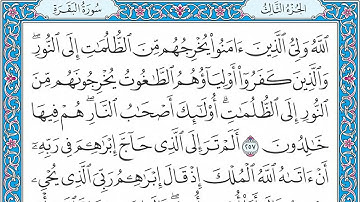 سُورَةُ البَقَرَةِ
الجُزْءُ الثَّالِثُ
ٱللَّهُ وَلِيُّ ٱلَّذِينَ ءَامَنُوا۟ يُخْرِجُهُم مِّنَ ٱلظُّلُمَـٰتِ إِلَى ٱلنُّورِ ۖ
وَٱلَّذِينَ كَفَرُوٓا۟ أَوْلِيَآؤُهُمُ ٱلطَّـٰغُوتُ يُخْرِجُونَهُم مِّنَ
ٱلنُّورِ إِلَى ٱلظُّلُمَـٰتِ ۗ أُو۟لَـٰٓئِكَ أَصْحَـٰبُ ٱلنَّارِ ۖ هُمْ فِيهَا
خَـٰلِدُونَ ٢٥٧ أَلَمْ تَرَ إِلَى ٱلَّذِى حَآجَّ إِبْرَٰهِـۧمَ فِى رَبِّهِۦٓ
أَنْ ءَاتَىٰهُ ٱللَّهُ ٱلْمُلْكَ إِذْ قَالَ إِبْرَٰهِـۧمُ رَبِّىَ ٱلَّذِى يُحْىِۦ